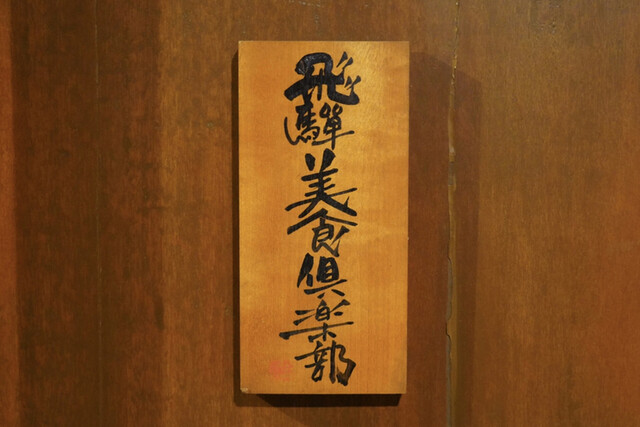 飛騨美食倶楽部